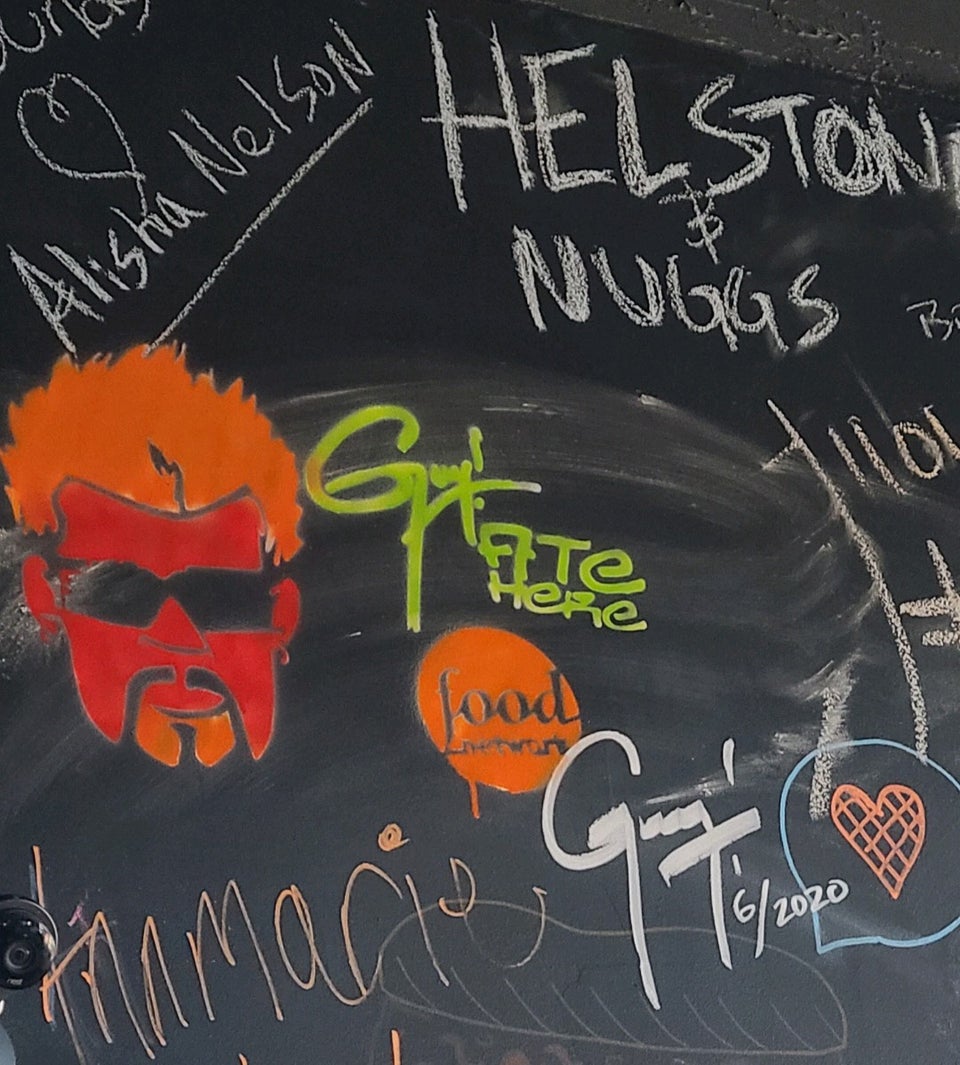 Alisha Nelson
HELSTON
&
NUGGS
Guy
ATE
HERE
food
network
Guy
6/2020
Annmarie